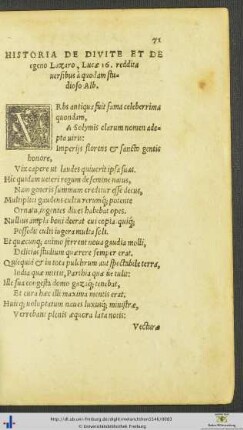 71
HISTORIA DE DIVITE ET DE
egeno Lazaro, Lucæ 16. reddita
versibus à quodam stu-
dioso Alb.
VRbs antiqua fuit fama celeberrima
quondam,
A Solymis clarum nomen ade-
pta viris:
Imperijs florens & sancto gentis
honore,
Vix capere ut laudes quiuerit ipsa suas.
Hic quidam ueteri regum de semine natus,
Nam generis summum creditur esse decus,
Multiplici gaudens cultu rerumq; potente
Ornata ingentes diues habebat opes.
Nullius ampla boni deerat cui copia quiq;
Possedit culti iugera multa soli.
Et quæcunq; animo ferrent noua gaudia molli,
Delicias studium quærere semper erat.
Quicquid & in tota pulchrum aut spectabile terra,
India quæ mittit, Parthia quæ tulit:
Illi sua congesta domo gazæq; tenebat,
Et cura hæc illi maxima mentis erat.
Hutcq; uoluptatum naues luxusq; ministræ,
Verrebant plenis æquora lata notis:
Vecturæ
http://dl.ub.uni-freiburg.de/diglit/
© Universitätsbibliothek Freiburg